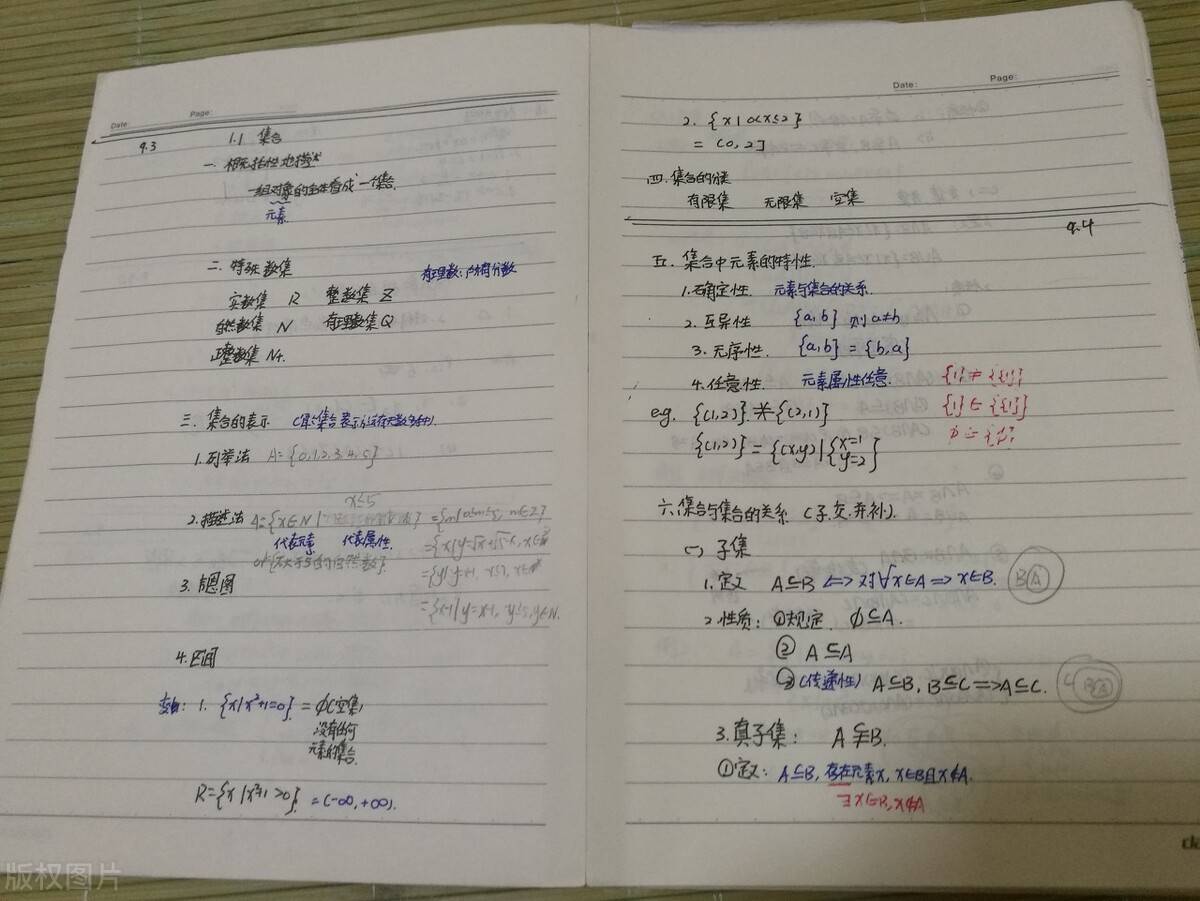 Date:
Page:
9.3
1.1 集合
一. 概括性地描述
一组对象的全体看成一个集合.
元素
二. 特殊数集
有理数:所有分数
实数集 R 整数集 Z
自然数集 N 有理数集Q
正整数集 N+.
三. 集合的表示
1.列举法 A={0,1,2,3,4,5}
x≤5
2.描述法 A={x∈N|
代表元素 代表属性.
={m|0≤m≤5, m∈Z}
或{不大于5的自然数}.
3.韦恩图
={x-1|y=x-1, y≤5,y∈N.
4.区间
1. {x|x²+1=0} = ∅(空集,
没有任何
元素的集合.
R={x|x²+1>0} =(-∞,+∞).
Date:
Page:
2. {x|0<x≤2}
= (0,2]
四.集合的分类
有限集 无限集 空集
9.4
五. 集合中元素的特性.
1.确定性. 元素与集合的关系.
2.互异性 {a,b} 则a≠b
3.无序性. {a,b}={b,a}
4.任意性. 元素属性任意.
{1}≠{{1}}
{1}∈{{1}}
e.g. {(1,2)}≠{(2,1)}
{(1,2)}={(x,y)|{x=1
y=2}
六.集合与集合的关系 (子.交.并.补).
(一)子集
1.定义 A⊆B ⟺对∀x∈A⟹x∈B.
B A
2.性质: ①规定. ∅⊆A.
② A⊆A
③(传递性) A⊆B, B⊆C⟹A⊆C.
C B A
3.真子集: A⫋B.
①定义: A⊆B, 存在元素x, x∈B且x∉A.
∃x∈B,x∉A
版权图片